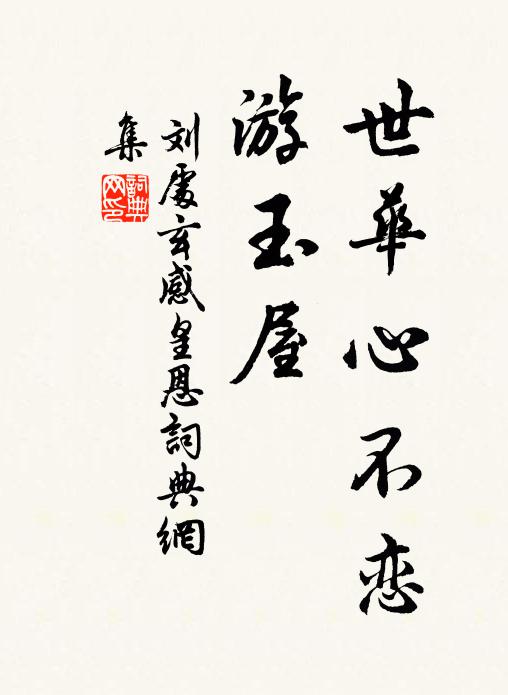 世華心不恋
游玉屋
刘處玄感皇恩詞典網
集
詞典網印